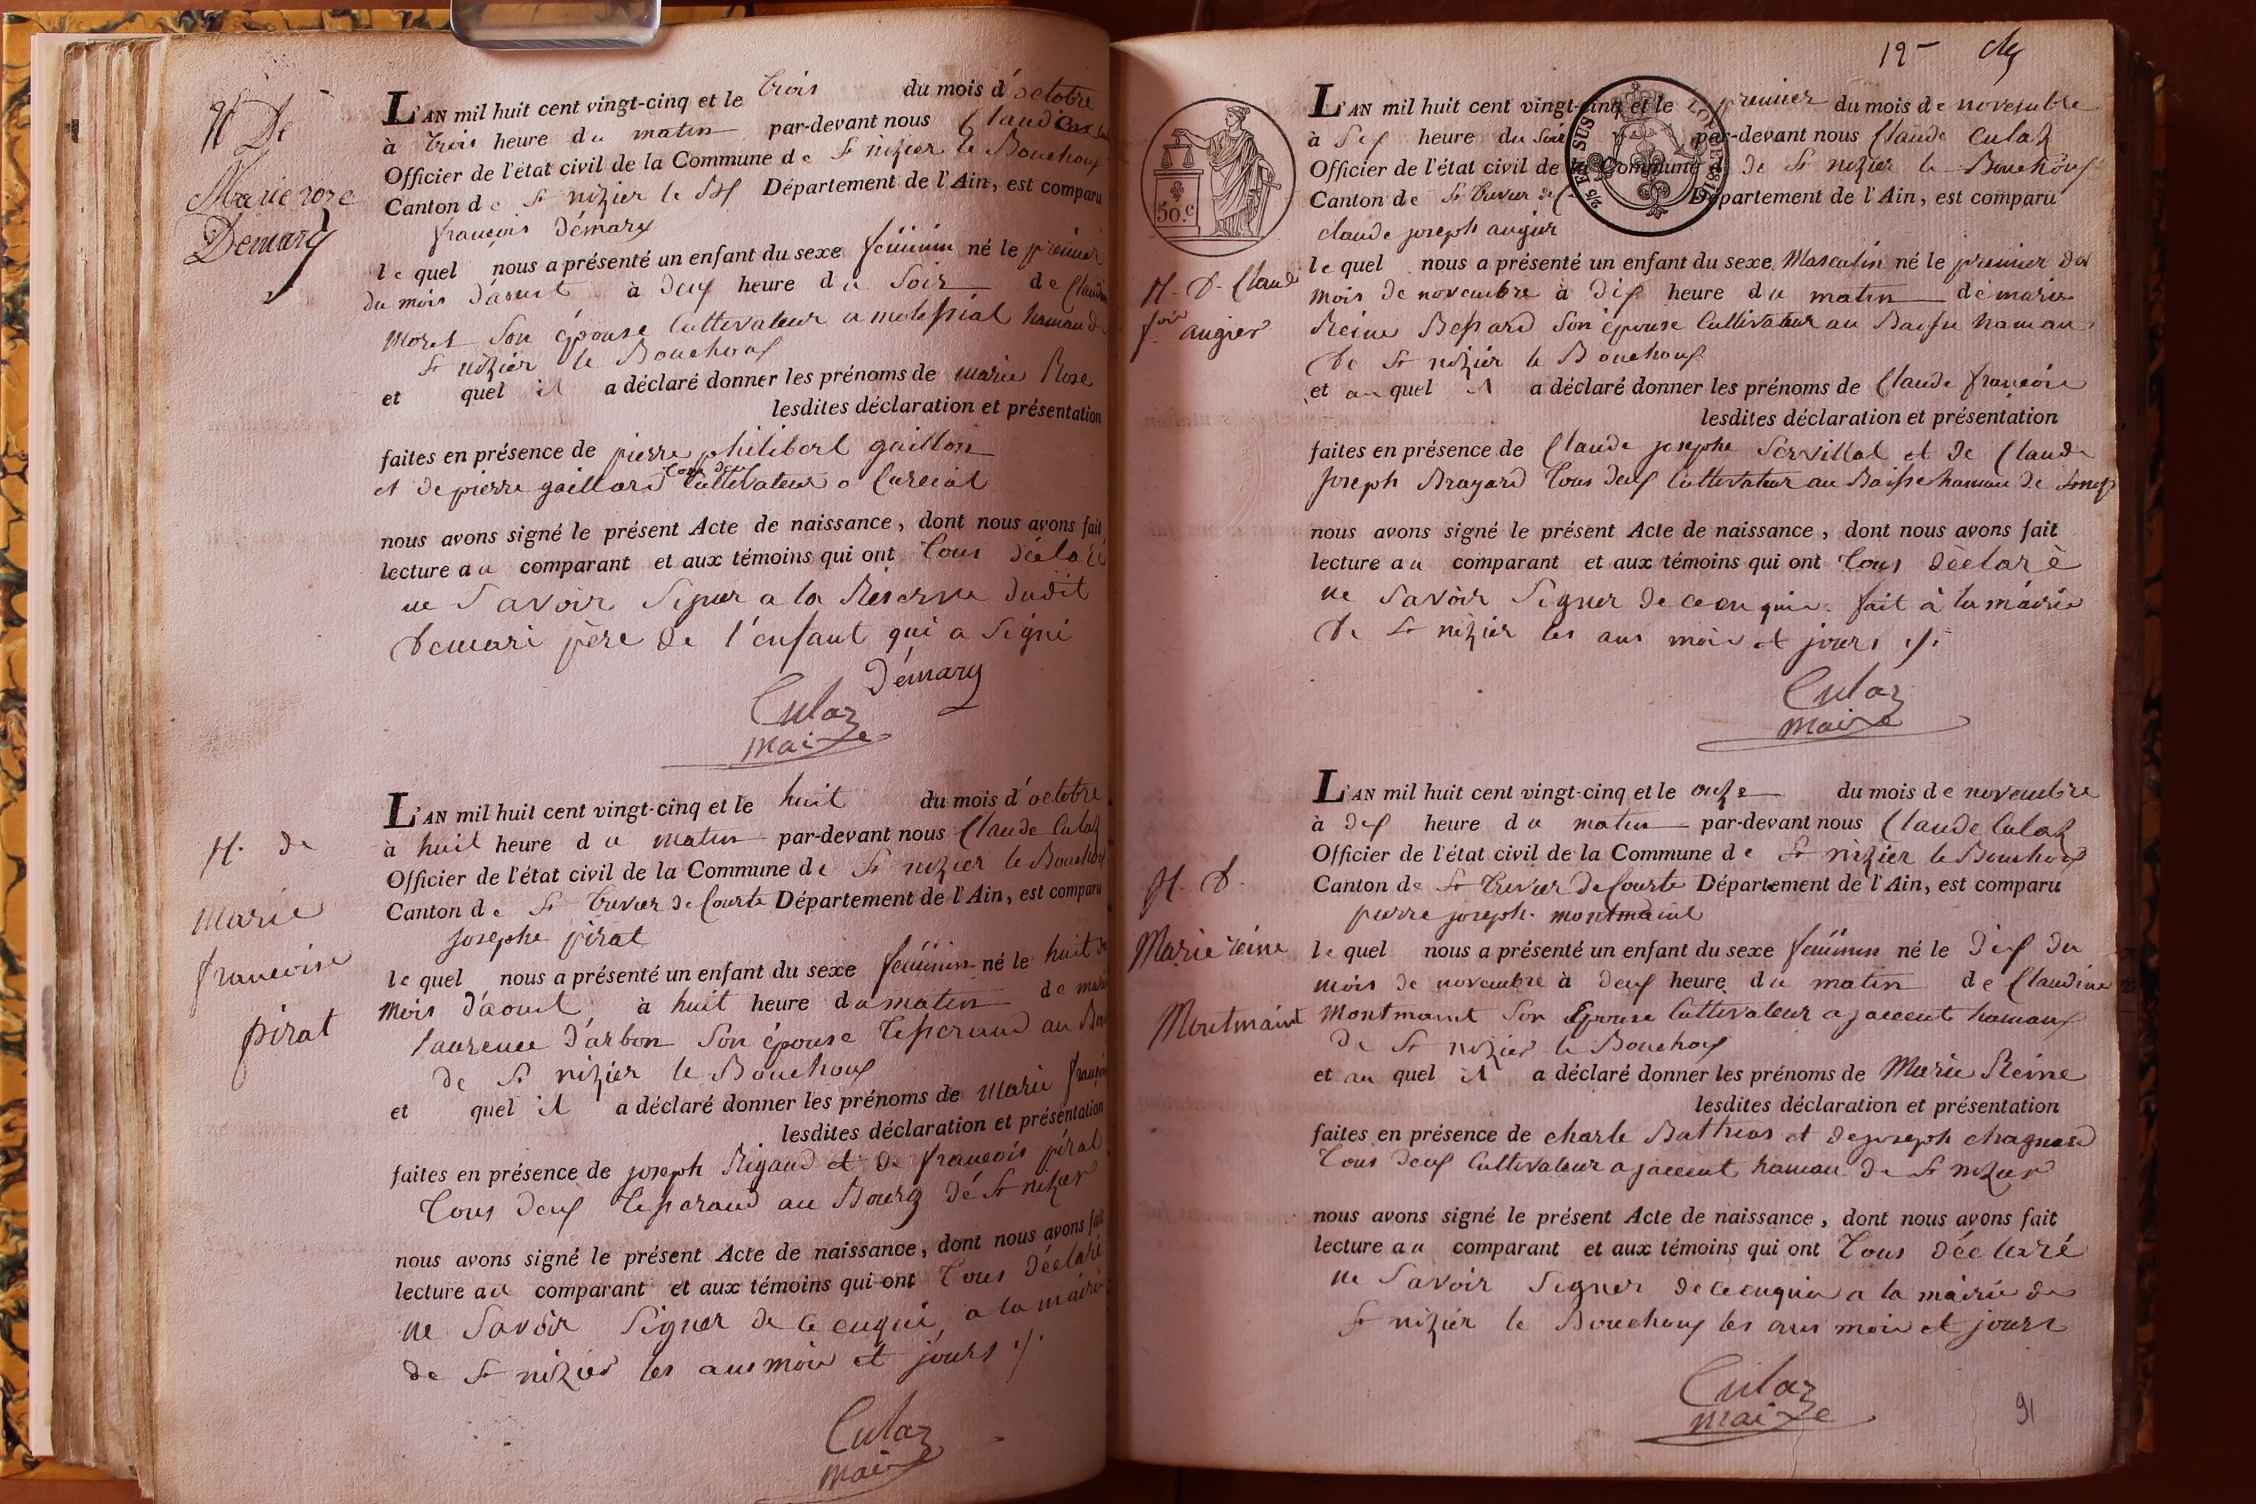 N De
Marie roze
Demary
L'AN mil huit cent vingt-cinq et le trois du mois d'octobre
à trois heure du matin par-devant nous Claude
Officier de l'état civil de la Commune de St nizier le Bouchoux
Canton de St nizier le Département de l'Ain, est comparu
françois démary
le quel nous a présenté un enfant du sexe féminin né le premier
du mois d'aout à deux heure du soir de Claudine
Moret son épouse Cultivateur a hamau de
St nizier le Bouchoux
et quel il a déclaré donner les prénoms de marie Rose
lesdites déclaration et présentation
faites en présence de pierre philibert gaillon
et de pierre gaillard tous deux Cultivateur a
nous avons signé le présent Acte de naissance, dont nous avons fait
lecture au comparant et aux témoins qui ont tous déclaré
ne savoir signer a la Réserve dudit
demari père de l'enfant qui a signé
Démary
Culaz
maire
N. de
marie
francoise
pirat
L'AN mil huit cent vingt-cinq et le huit du mois d'octobre
à huit heure du matin par-devant nous Claude Culaz
Officier de l'état civil de la Commune de St nizier le Bouchoux
Canton de St trivier de Courte Département de l'Ain, est comparu
josephe pirat
le quel nous a présenté un enfant du sexe féminin né le huit du
mois d'aout à huit heure du matin de marie
laurence d'arbon son épouse tisserand au
de St nizier le Bouchoux
et quel il a déclaré donner les prénoms de marie françoise
lesdites déclaration et présentation
faites en présence de joseph Rigaud et de francois pirat
tous deux tisserand au Bourg de St nizier
nous avons signé le présent Acte de naissance, dont nous avons fait
lecture au comparant et aux témoins qui ont tous déclaré
ne savoir signer de ce enquis a la mairie
de St nizier les ans mois et jours
Culaz
maire
12
50.c
N. D. Claude
fois augier
L'AN mil huit cent vingt-cinq et le premier du mois de novembre
à six heure du soir par-devant nous Claude Culaz
Officier de l'état civil de la Commune de de St nizier le Bouchoux
Canton de St trivier de C Département de l'Ain, est comparu
claude joseph augier
le quel nous a présenté un enfant du sexe Masculin né le premier du
mois de novembre à dix heure du matin de marie
Reine Bessard son épouse Cultivateur au hamau
de St nizier le Bouchoux
et au quel il a déclaré donner les prénoms de Claude françois
lesdites déclaration et présentation
faites en présence de Claude josephe Servillat et de Claude
Joseph Brayard tous deux Cultivateur au hamau de
nous avons signé le présent Acte de naissance, dont nous avons fait
lecture au comparant et aux témoins qui ont tous déclaré
ne savoir signer de ce enquis. fait à la mairie
de St nizier les ans mois et jours
Culaz
maire
N. D.
Marie reine
Montmaint
L'AN mil huit cent vingt-cinq et le onze du mois de novembre
à dix heure du matin par-devant nous Claude Culaz
Officier de l'état civil de la Commune de St nizier le Bouchoux
Canton de St trivier de Courte Département de l'Ain, est comparu
pierre joseph montmaint
le quel nous a présenté un enfant du sexe féminin né le dix du
mois de novembre à deux heure du matin de Claudine
Montmaint son Epouse Cultivateur a jaccent hamau
de St nizier le Bouchoux
et au quel il a déclaré donner les prénoms de Marie Reine
lesdites déclaration et présentation
faites en présence de charle et de joseph
tous deux Cultivateur a jaccent hamau de St nizier
nous avons signé le présent Acte de naissance, dont nous avons fait
lecture au comparant et aux témoins qui ont tous déclaré
ne savoir signer de ce enquis a la mairie de
St nizier le Bouchoux les ans mois et jours
Culaz
maire
91